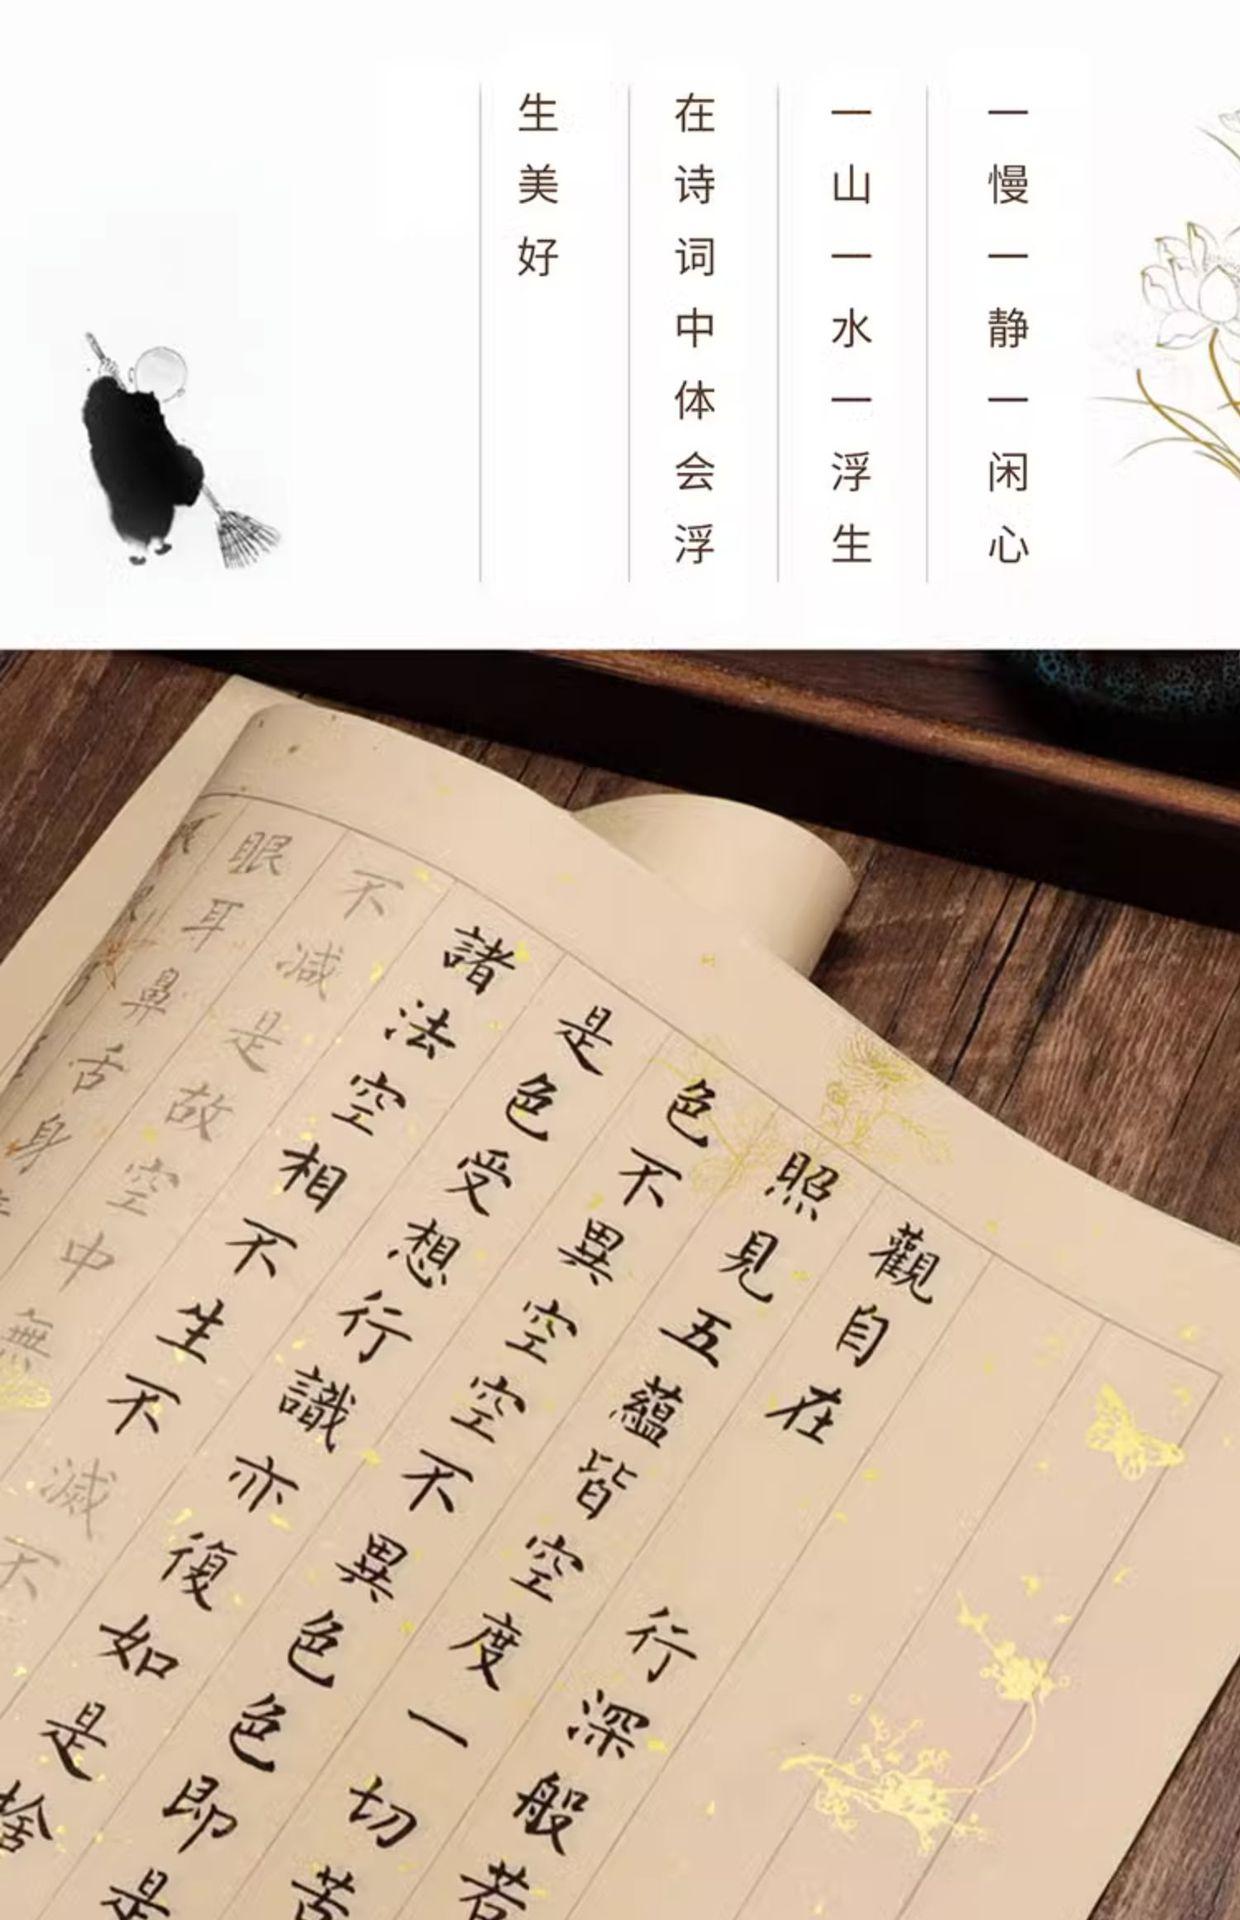 一慢一静一闲心
一山一水一浮生
在诗词中体会浮
生美好
觀自在 行深般若
照見五蘊皆空度一切苦
色不異空空不異色色即是
是色受想行識亦復如是舍
諸法空相不生不滅不
不減是故空中無
眼耳鼻舌身